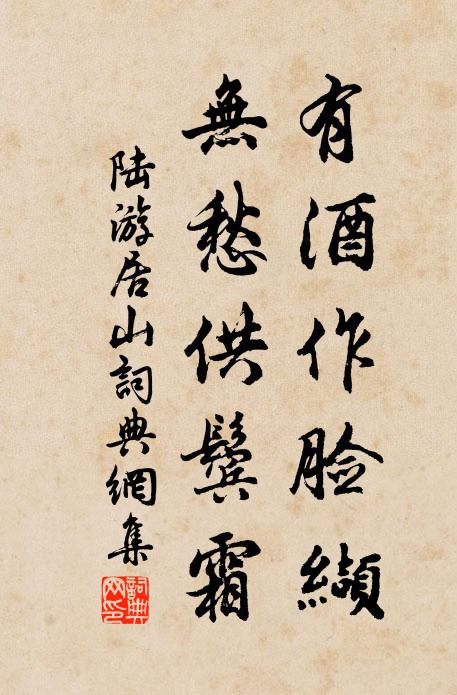 有酒作脸纈
無愁供鬓霜
陆游居山詞典網集
詞典網印